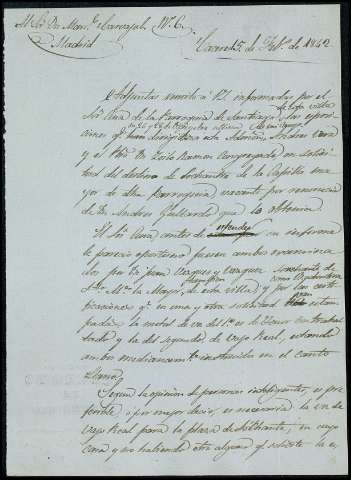 M. Sr. Dn. Man.l Carvajal M. C.
Madrid
Cáceres 15 de Feb.o de 1842
Adjuntas remito a VI. informadas por el
Sr. Cura de la Parroquia de Santiago de esta villa, las esposi-
ciones q.e han dirigido a esta Admón. Andres Vera
y el Pbro. D. Zoilo Ramon Congregado, en solici-
tud del destino de Sochantre de la Capilla ma-
yor de dha. Parroquia vacante por renuncia
de Dn. Andres Gallardo que la obtenia.
El Sr. Cura antes de estender su informe
le parecio oportuno fuesen ambos examina-
dos por Dn. Juan Vazquez y Vazquez, sochantre de
Sta. Ma. la Mayor de esta villa, y por las certi-
ficaciones q.e en una y otra solicitud estan estam-
padas, la metal de voz del 1.o es de tenor contrahal-
tado y la del segundo de vajo Real, estando
ambos medianam.te instruidos en el canto
llano.
Segun la opinion de personas inteligentes, es pre-
ferible, o por mejor decir, es necesaria la voz de
vajo Real para la plaza de Sochantre, en cuyo
caso y no habiendo otro alguno q.e solicite la e